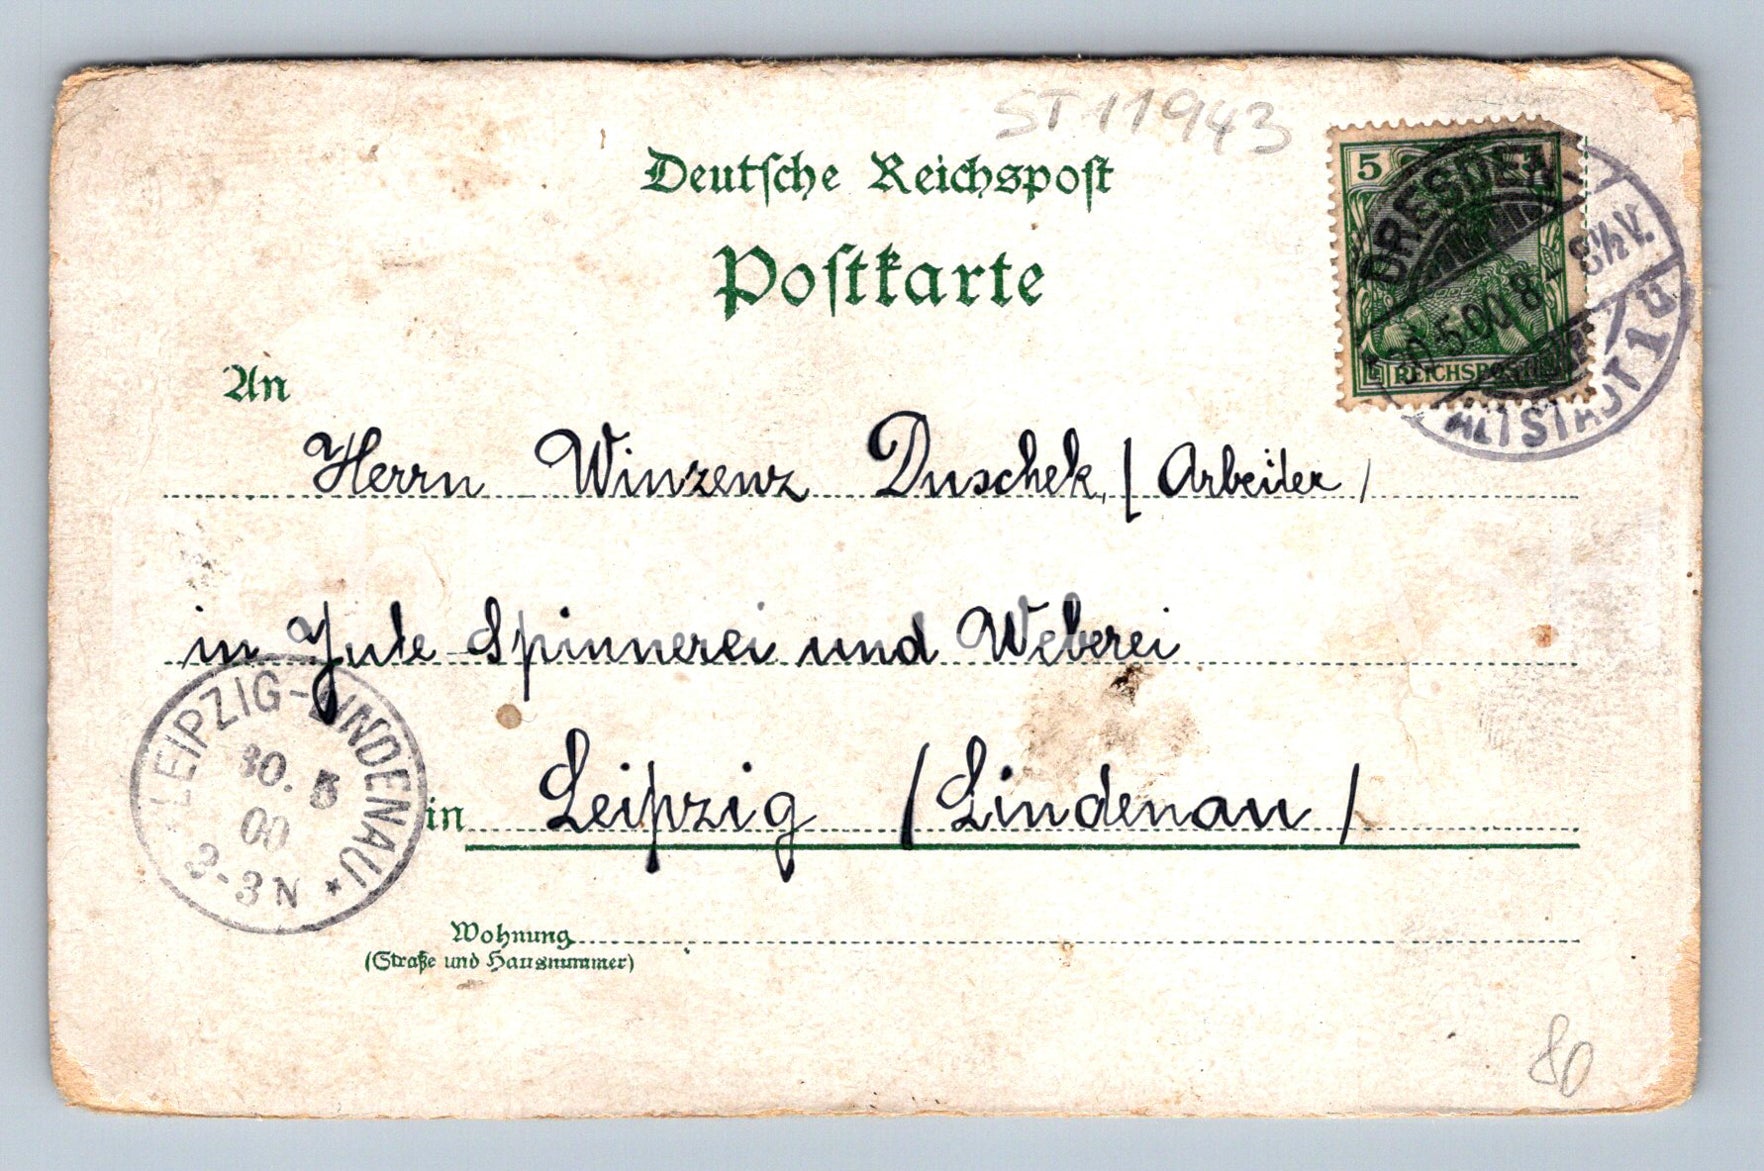 ST 11943
Deutsche Reichspost
Postkarte
5
REICHSPOST
DRESDEN
30.5.00.8-8½V.
ALTSTADT 1 u
An
Herrn Winzenz Duschek, / Arbeiter /
in Jute Spinnerei und Weberei
in Leipzig / Lindenau /
LEIPZIG-LINDENAU *
30. 5
00
2-3N
Wohnung
(Straße und Hausnummer)
80